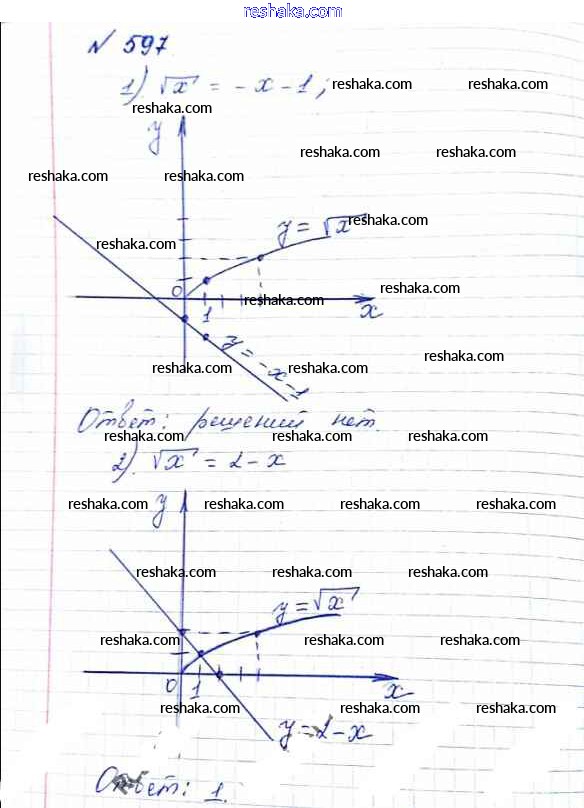 reshaka.com
№ 597
1) √x = -x-1;
reshaka.com reshaka.com
reshaka.com
y
reshaka.com reshaka.com
reshaka.com
y = √x reshaka.com
reshaka.com
reshaka.com
0 reshaka.com
1 x
y = -x-1
reshaka.com
reshaka.com reshaka.com
Ответ: решений нет.
reshaka.com reshaka.com
2) √x = 2-x
reshaka.com
y
reshaka.com reshaka.com reshaka.com
reshaka.com reshaka.com reshaka.com
y = √x
reshaka.com reshaka.com reshaka.com
0 1 x
reshaka.com reshaka.com reshaka.com
y = 2-x
Ответ: 1.
reshaka.com reshaka.com reshaka.com